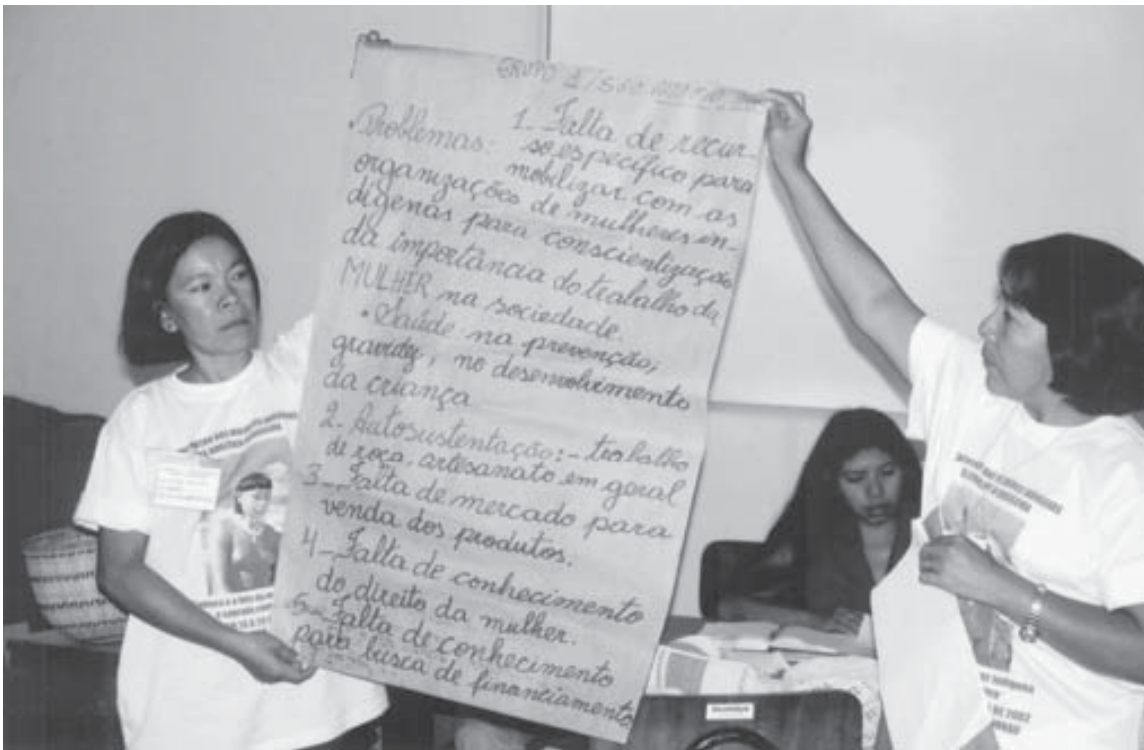 GRUPO 1
1- Falta de recur-
• Problemas: so específico para
mobilizar com as
organizações de mulheres in-
dígenas para conscientização
da importância do trabalho da
MULHER na sociedade.
• Saúde na prevenção,
gravidez, no desenvolvimento
da criança
2. Autosustentação: - trabalho
de roça, artesanato em geral
3- Falta de mercado para
venda dos produtos.
4- Falta de conhecimento
do direito da mulher.
5- Falta de conhecimento
para busca de financiamento
DE 2002